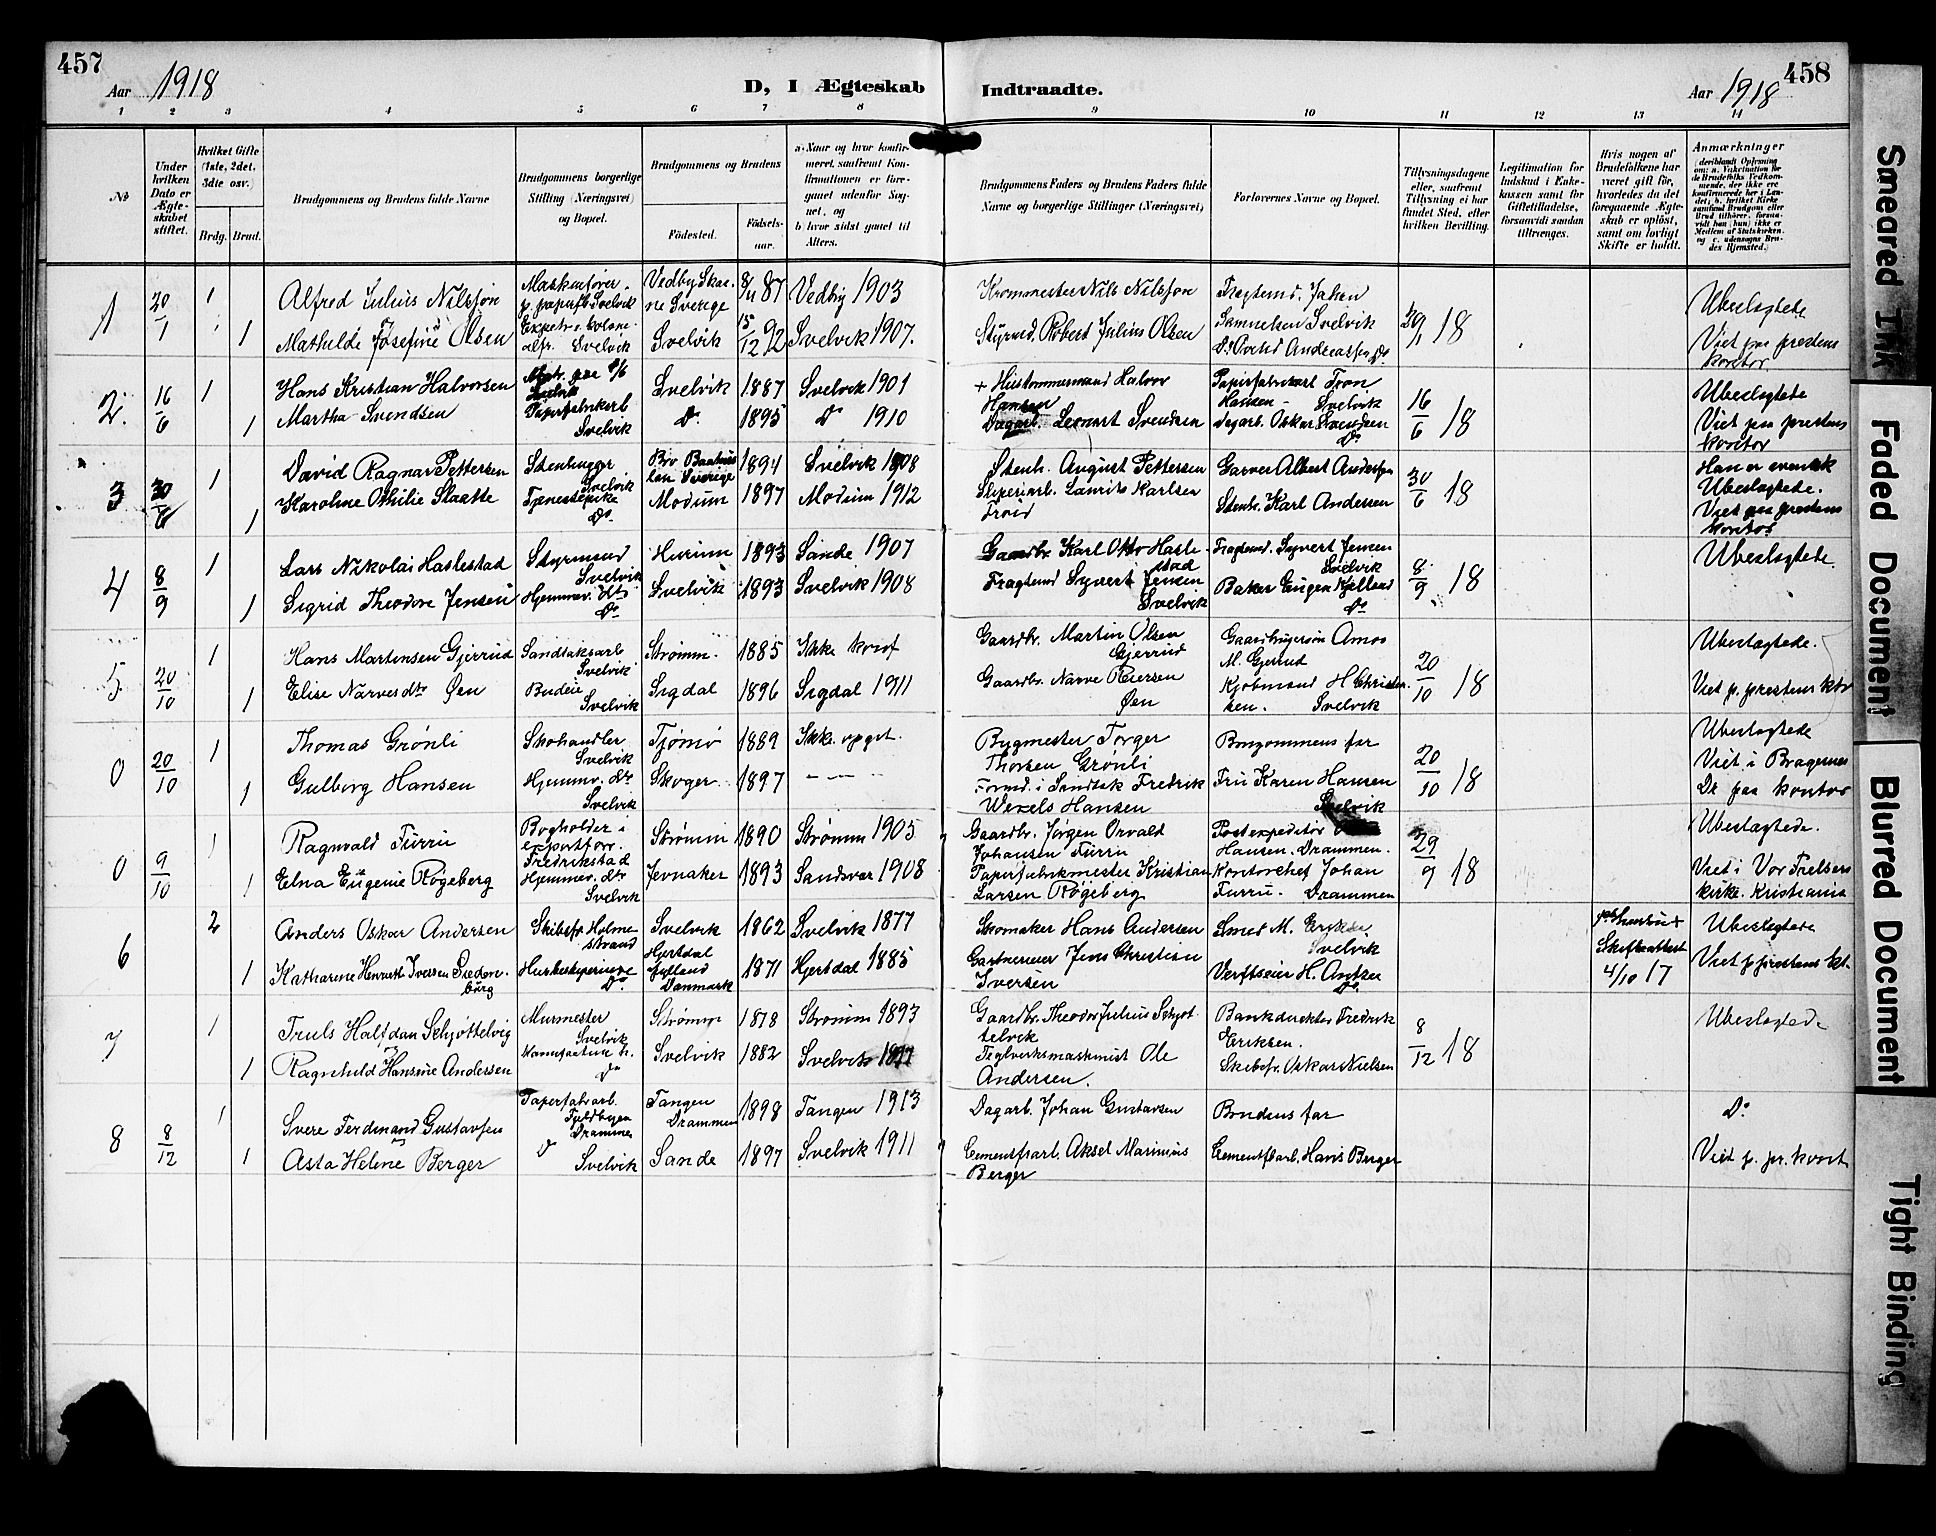 457
Aar 1918
D, I Ægteskab Indtraadte.
458
Aar 1918
1 2 3 4 5 6 7 8 9 10 11 12 13 14
No
Under hvilken Dato er Ægteskabet stiftet.
Hvilket Gifte (1ste, 2det, 3die osv.)
Brdg. Brud.
Brudgommens og Brudens fulde Navne
Brudgommens borgerlige Stilling (Næringsvei) og Bopæl.
Brudgommens og Brudens
Fødested.
Fødselsaar.
a. Naar og hvor konfirmeret, saafremt Konfirmationen er foregaaet udenfor Sognet, og
b. hvor sidst gaaet til Alters.
Brudgommens Faders og Brudens Faders fulde Navne og borgerlige Stillinger (Næringsvei)
Forlovernes Navne og Bopæl.
Tillysningsdagene eller, saafremt Tillysning ei har fundet Sted, efter hvilken Bevilling.
Legitimation for Indskud i Enkekassen samt for Giftetilladelse, forsaavidt saadan tiltrænges.
Hvis nogen af Brudefolkene har været gift før, hvorledes da det foregaaende Ægteskab er opløst, samt om lovligt Skifte er holdt.
Anmærkninger
1 20/1 1 Alfred Julius Nilsson
Vedby Skaane Sverige 8/11 87 Vedby 1903
Nils Nilsson
Ubeslegtede
1 Mathilde Josefine Olsen Svelvik Svelvik 15/12 92 Svelvik 1907.
Styrmd. Robert Julius Olsen
Samuelsen Svelvik
18
Viet paa prestens kontor
2. 16/6 1 Hans Kristian Halvorsen
Svelvik 1887 Svelvik 1901
+ Halvor Hansen
Hansen - Svelvik
16/6 18
Ubeslegtede
1 Martha Svendsen Papirfabrikarb Svelvik Do. 1895 Do 1910
Dagarb. Lennart Svendsen
Dagarb. Oskar Svendsen Do
Viet paa prestens kontor
3 30/6 1 David Ragnar Pettersen Stenhugger Svelvik
Sverige 1894 Svelvik 1908
Stenh. August Pettersen
Garver Albert Andersen
30/6 18
Han er svensk
Ubeslegtede.
1 Karoline Othilie Slaatte Tjenestepike Do. Modum 1897 Modum 1912
Sliperiarb. Laurits Karlsen
Stenh. Karl Andersen
Viet paa prestens kontor
4 8/9 1 Lars Nikolai Haslestad Styrmand Svelvik Hurum 1893 Sande 1907
Gaardbr. Karl Otto Haslestad
Fragtemd. Syvert Jensen Svelvik
8/9 18
Ubeslegtede.
1 Sigrid Theodore Jensen Hjemmev. dtr Do Svelvik 1893 Svelvik 1908
Fragtemd Syvert Jensen Svelvik
Baker Eugen Kjelland Do
5. 20/10 1 Hans Martensen Gjerrud Sandtaksarb Svelvik Strømm. 1885 Ikke konf
Gaardbr. Martin Olsen Gjerrud
Gaardbrugersøn Amos M. Gjerrud
20/10 18
Ubeslegtede.
1 Elise Narvesdtr Øen Budeie Svelvik Sigdal 1896 Sigdal 1911
Gaardbr. Narve Øen
Kjøbmand H Christensen. Svelvik
Viet p. prestens ktr
0 20/10 1 Thomas Grønli Skohandler Svelvik Tjømø 1889 Ikke opget.
Bygmester Torger Thorsen Grønli
Brugommens far
20/10 18
Ubeslegtede
1 Gulborg Hansen Hjemmev. dtr Svelvik Skoger 1897 — — —
Formd. i Sandtak Fredrik Wexels Hansen
Fru Karen Hansen Svelvik
Viet i Bragernes Dr paa kontor
0 9/10 1 Ragnvald Furru Bogholder i exportforr. Fredrikstad Strømm 1890 Strømm 1905
Gaardbr. Jørgen Orvald Johansen Furru
Postexpeditør Hansen. Drammen.
29/9 18
Ubeslegtede.
1 Elna Eugenie Røgeberg Hjemmev. dtr Svelvik Jevnaker 1893 Sandsvær 1908
Papirfabrikmester Kristian Larsen Røgeberg
Kontorchef Johan Furru. Drammen
Viet i Vor Frelsers kirke. Kristiania
6 2 Anders Oskar Andersen Skibsfr. Holmestrand Svelvik 1862 Svelvik 1877
Skomaker Hans Andersen
Smed M. Svelvik
Skifteattest 4/10 17
Ubeslegtede
1 Katharene Iversen
Do. Hjertdal Jylland Danmark 1871 Hjertdal 1885
Gartnereier Jens Christian Iversen
Verftseier H. Do.
Viet p prestens kt.
7 1 Truls Halfdan Schjøttelvig Murmester Svelvik Strømm 1878 Strømm 1893
Gaardbr. Theodor Julius Schjøttelvik
Bankdirektør Fredrik Eriksen.
8/12 18
Ubeslegtede
1 Ragnhild Hansine Andersen Manufactur h. Do Svelvik 1882 Svelvik
Teglverksmaskinist Ole Andersen.
Skibsfr. Oskar Nielsen
8 8/12 1 Svere Ferdinand Gustavsen Papirfabarb. Drammen Tangen Drammen 1898 Tangen 1913
Dagarb. Johan Gustavsen
Brudens far
Do
1 Asta Helene Berger Svelvik Sande 1897 Svelvik 1911
Cementfarb. Aksel Marinius Berger
Cementfarb. Hans Berger
Viet p. pr. kont
Smeared Ink
Faded Document
Blurred Document
Tight Binding